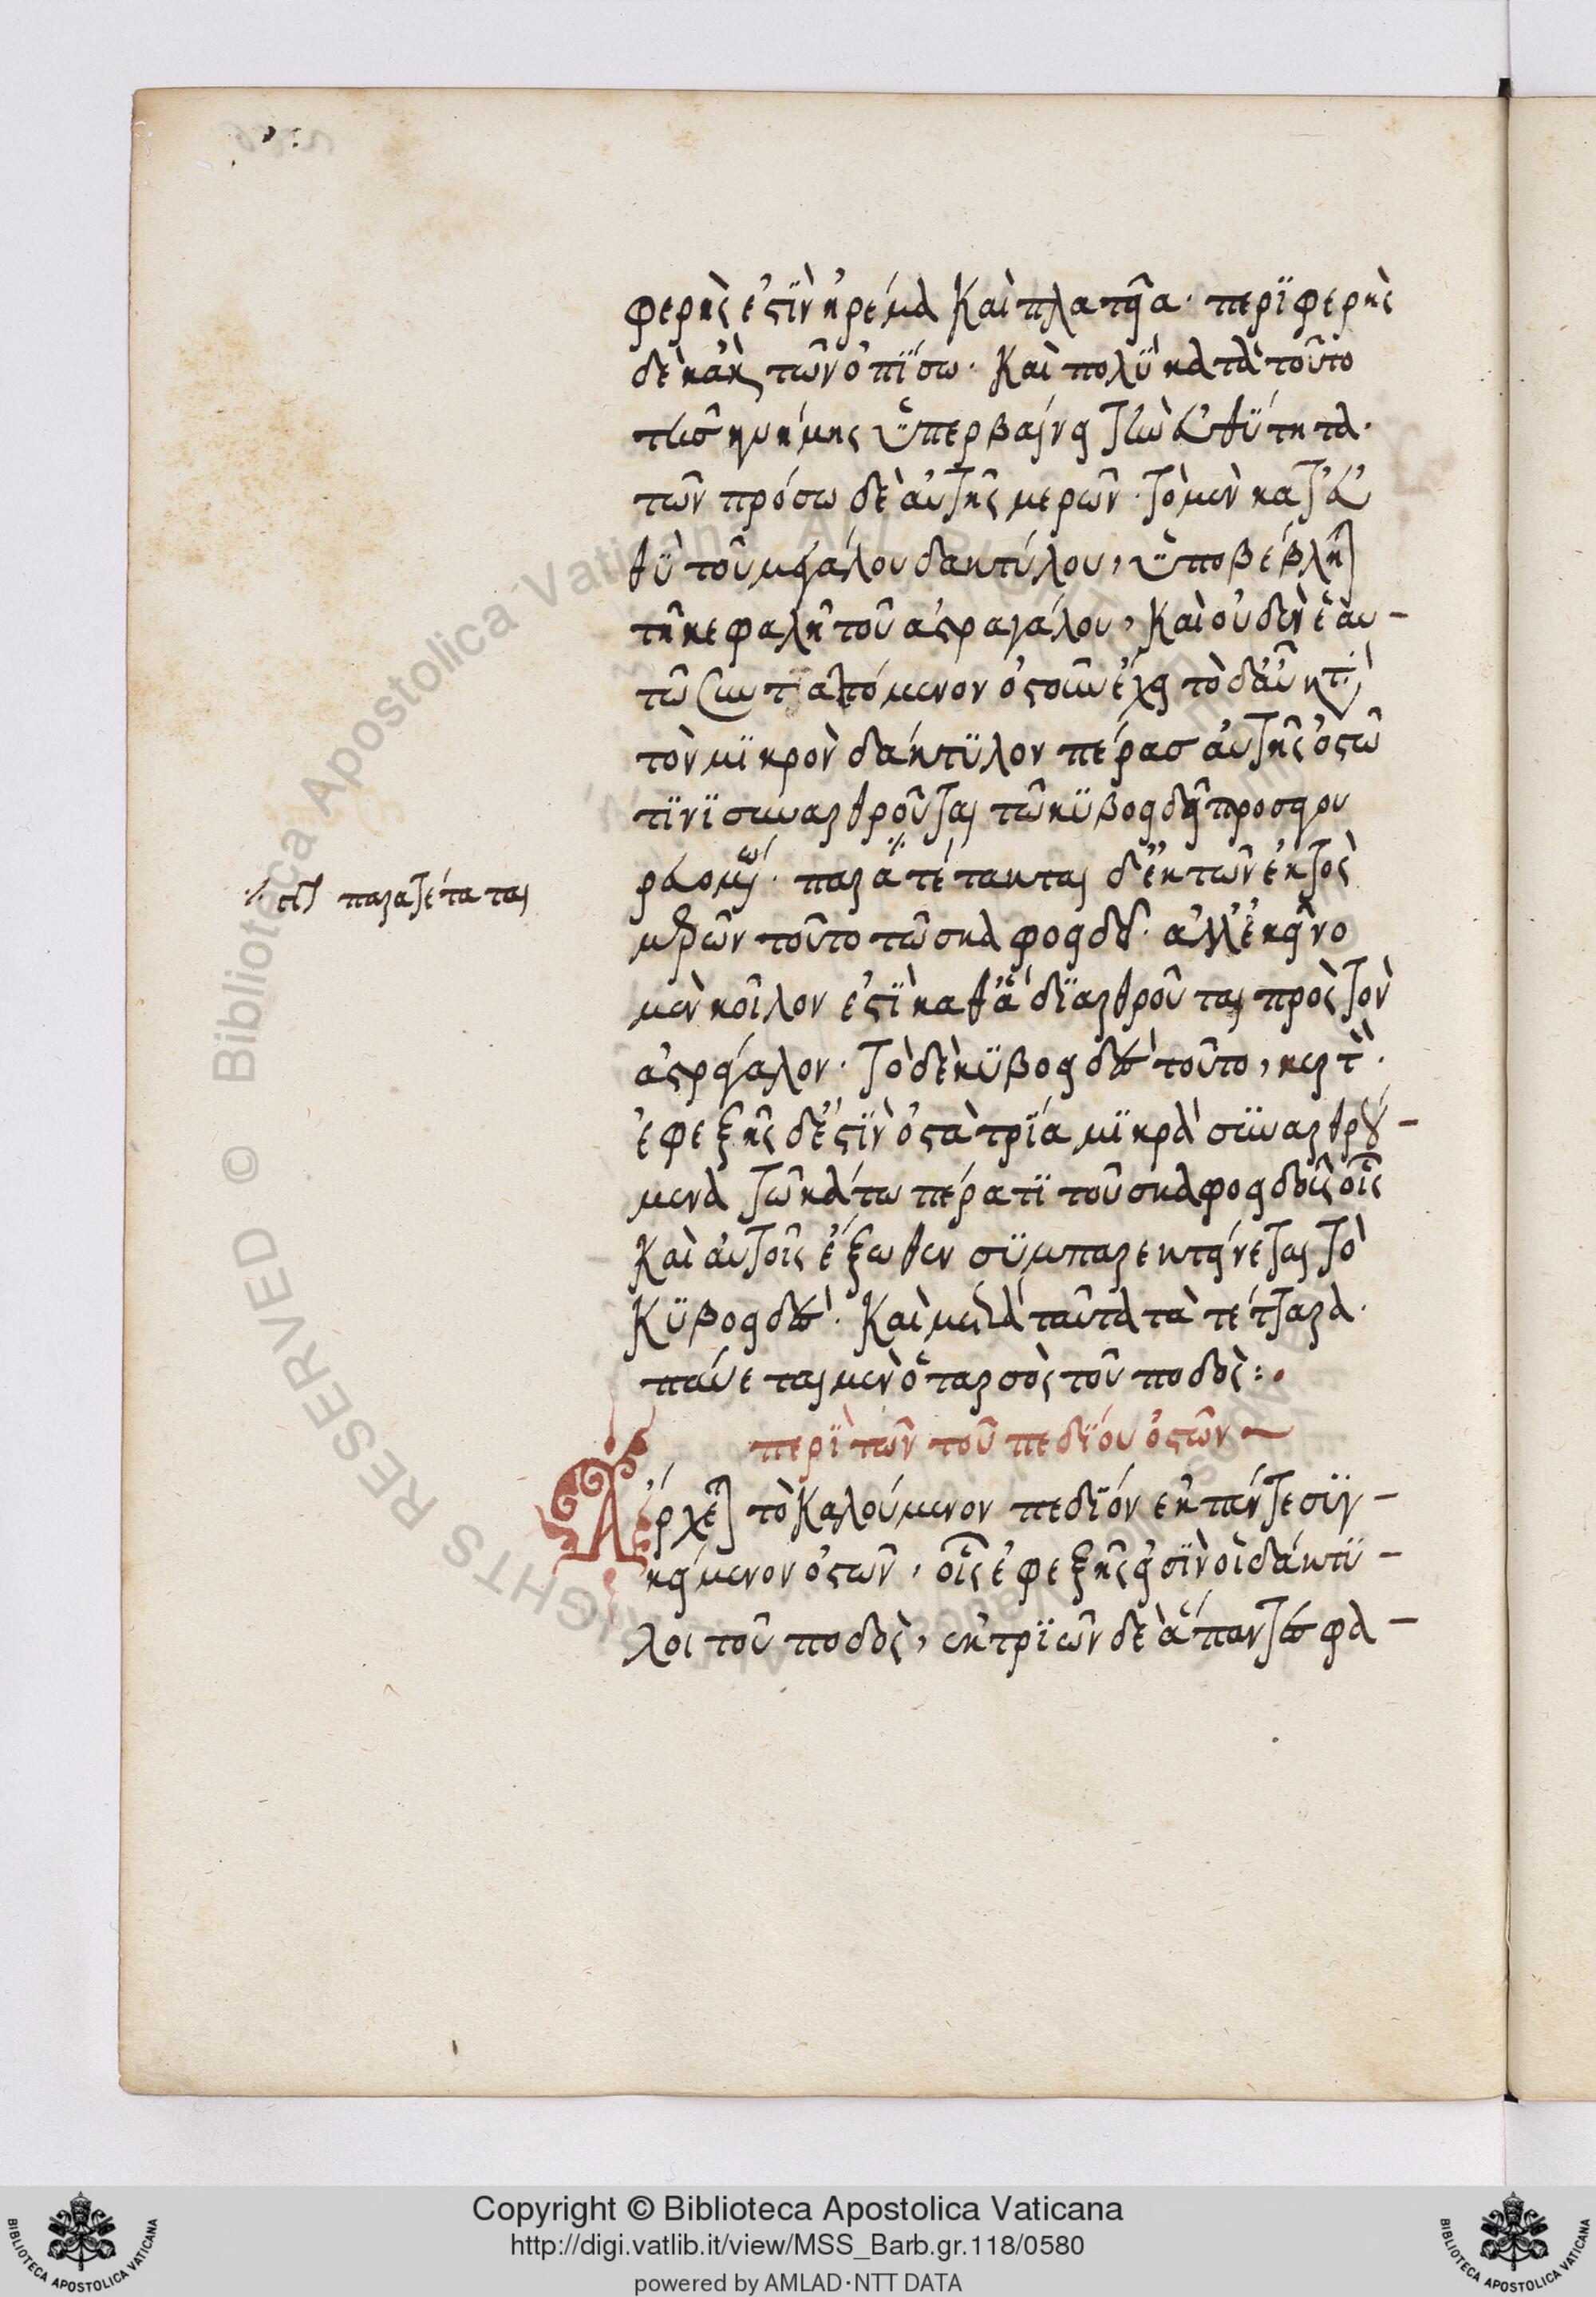 φερὴς ἐστὶν ἠρέμα καὶ πλατεῖα· περιφερὴς
δὲ κἀκ τῶν ὀπίσω· καὶ πολὺ κατὰ τοῦτο
τῆς κνήμης ὑπερβαίνει τὴν εὐθύτητα·
τῶν πρόσω δὲ αὐτῆς μερῶν· τὸ μὲν κατ' εὐ
θὺ τοῦ μεγάλου δακτύλου, ὑποβέβληται
τῇ κεφαλῇ τοῦ ἀστραγάλου, καὶ οὐδὲν ἑαυ-
τῷ συναπτόμενον ὀστοῦν ἔχει τὸ δ' αὖ κατὰ
τὸν μικρὸν δάκτυλον πέρας αὐτῆς ὀστῷ
τινὶ συναρθροῦται τῷ κυβοειδεῖ προσαγου
παρατέτακται δ' ἐκ τῶν ἐκτὸς
μερῶν τοῦτο τῷ σκαφοειδεῖ· ἀλλ' ἐκεῖνο
μὲν κοῖλον ἐστὶ καθ' ἃ διαρθροῦται πρὸς τὸν
ἀστράγαλον· τὸ δὲ κυβοειδὲς τοῦτο, κυρτὸν·
ἐφεξῆς δ' ἐστὶν ὀστᾶ τρία μικρὰ συναρθρού-
μενα τῷ κάτω πέρατι τοῦ σκαφοειδοῦς οἷς
καὶ αὐτοῖς ἔξωθεν συμπαρεκτείνεται τὸ
κυβοειδὲς· καὶ μετὰ ταῦτα τὰ τέτταρα·
παύεται μὲν ὁ ταρσὸς τοῦ ποδὸς:·
περὶ τῶν τοῦ πεδίου ὀστῶν ~
Ἄρχεται τὸ καλούμενον πεδίον ἐκ πέντε συγ-
κείμενον ὀστῶν, οἷς ἐφεξῆς εἰσὶν οἱ δάκτυ-
λοι τοῦ ποδὸς, ἐκ τριῶν δὲ ἅπαντες φα-
παρατέταται
Copyright © Biblioteca Apostolica Vaticana
http://digi.vatlib.it/view/MSS_Barb.gr.118/0580
powered by AMLAD·NTT DATA
BIBLIOTECA APOSTOLICA VATICANA
BIBLIOTECA APOSTOLICA VATICANA